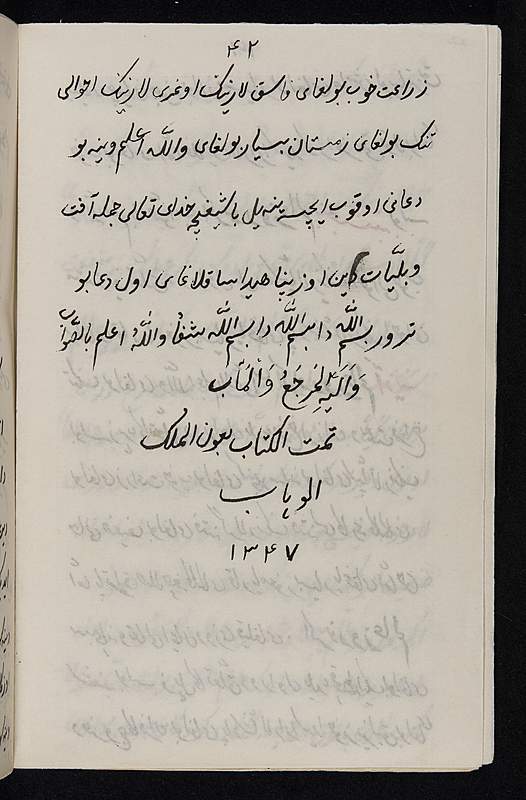 ۴۲
زراعت خوب بولغای فاسق لارنینک اوغری لارنینک احوالی
تنک بولغای زمستان بسیار بولغای والله اعلم وینه بو
دعانی اوقوب ایچسه ینه ییل باشیغچه خدای تعالی جمله آفت
وبلیّات این اوز پناهیدا ساقلاغای اول دعا بو
ترور بسم الله دا بسم الله دا بسم الله شفا والله اعلم بالصّواب
وَاِلَیْهِ المَرجَعُ وَالْمَآب
تمت الکتاب بعون الملک
الوهاب
۱۳۴۷